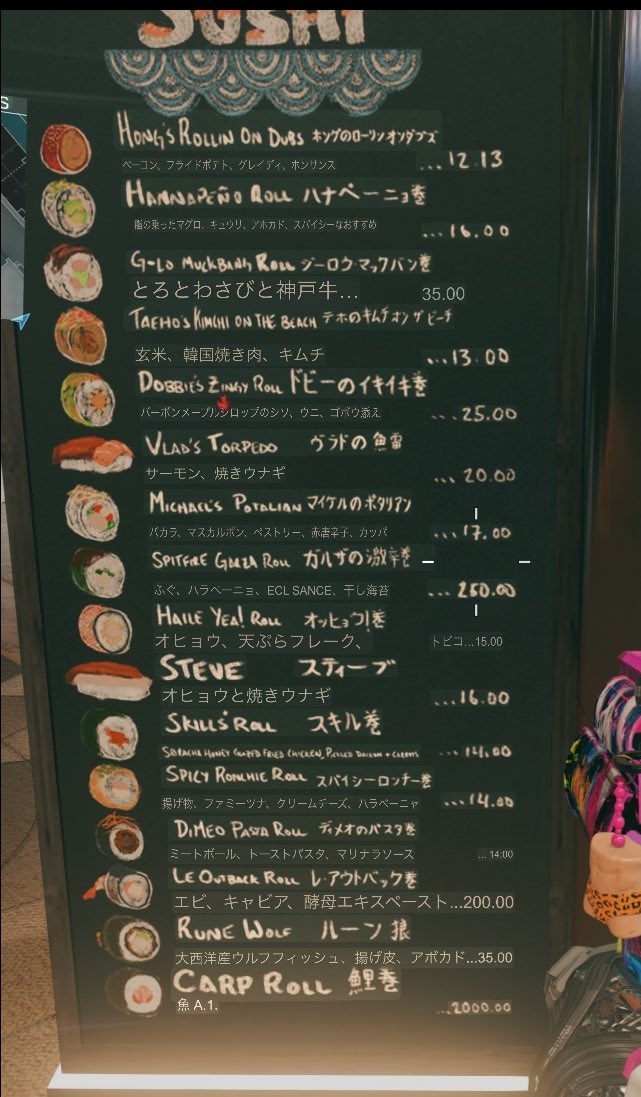 SUSHI
S
HONG'S ROLLIN ON DUBS キングのローリンオンダブズ
ベーコン、フライドポテト、グレイディ、ホンサンス
...12.13
HANNAPEÑO ROLL ハナペーニョ巻
脂の乗ったマグロ、キュウリ、アホカド、スパイシーなおすすめ
...16.00
G-LO MUCKBANG ROLL ジーロウ·マックバン巻
とろとわさびと神戸牛... 35.00
TAEHO'S KIMCHI ON THE BEACH テホのキムチオンザビーチ
玄米、韓国焼き肉、キムチ ...13.00
DOBBIE'S ZINGY ROLL ドビーのイキイキ巻
バーボンメープルシロップのシソ、ウニ、ゴボウ添え ...25.00
VLAD'S TORPEDO ヴラドの魚雷
サーモン、焼きウナギ ...20.00
MICHAEL'S POTALIAN マイケルのポタリアン
バカラ、マスカルボン、ペストリー、赤唐辛子、カッパ ...17.00
SPITFIRE GARZA ROLL ガルザの激辛巻
ふぐ、ハラペーニョ、ECL SANCE、干し海苔 ...250.00
HAILE YEA! ROLL オッヒョウ!巻
オヒョウ、天ぷらフレーク、 トビコ...15.00
STEVE スティーブ
オヒョウと焼きウナギ ...16.00
SKILLS' ROLL スキル巻
SRIRACHA HONEY GLAZED FRIED CHICKEN, PICKLED DAIKON + CARROTS ...14.00
SPICY RONCHIE ROLL スパイシーロンチー巻
揚げ物、ファミーツナ、クリームチーズ、ハラペーニャ ...14.00
DIMEO PASTA ROLL ディメオのパスタ巻
ミートボール、トーストパスタ、マリナラソース ...14:00
LE OUTBACK ROLL レ·アウトバック巻
エビ、キャビア、酵母エキスペースト...200.00
RUNE WOLF ルーン狼
大西洋産ウルフフィッシュ、揚げ皮、アボカド...35.00
CARP ROLL 鯉巻
魚 A.1. ...2000.00